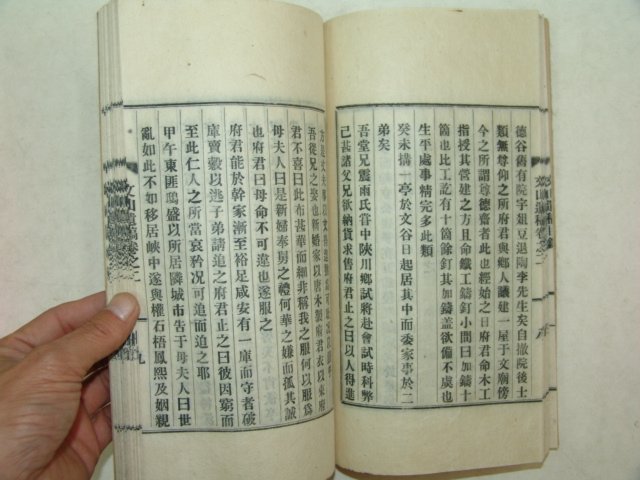 德谷舊有院宇俎豆退陶李先生矣自撤院後士
類無尊仰之所府君與鄉人議建一屋于文廟傍
今之所謂尊德齋者此也經始之日府君命木工
指授其營建之方且命鐵工鑄釘小間曰加鑄十
箇也比工訖有十箇餘釘其加鑄蓋欲備不虞也
生平處事精完多此類
癸未搆一亭於文谷日起居其中而委家事於二
弟矣
吾堂兄震雨氏甞中陜川鄉試將赴會試時科弊
已甚諸父兄欲納貨求售府君止之曰以人得進
吾從兄之娶也新婚家以唐木製府君衣以來府
君不喜曰此布甚華而細非稱我之服何以服爲
母夫人曰是新婦奉舅之禮何華之嫌而孤其誠
也府君曰母命不可違也遂服之
府君能於幹家漸至裕足咸安有一庫而守者破
庫賣穀以逃子弟請追之府君止之曰彼因窮而
至此仁人之所當哀矜况可追而迫之耶
甲午東匪鴟盛以所居隣城市告于母夫人曰世
亂如此不如移居峽中遂與權石梧鳳熙及姻親
文山遺稿卷之二
九